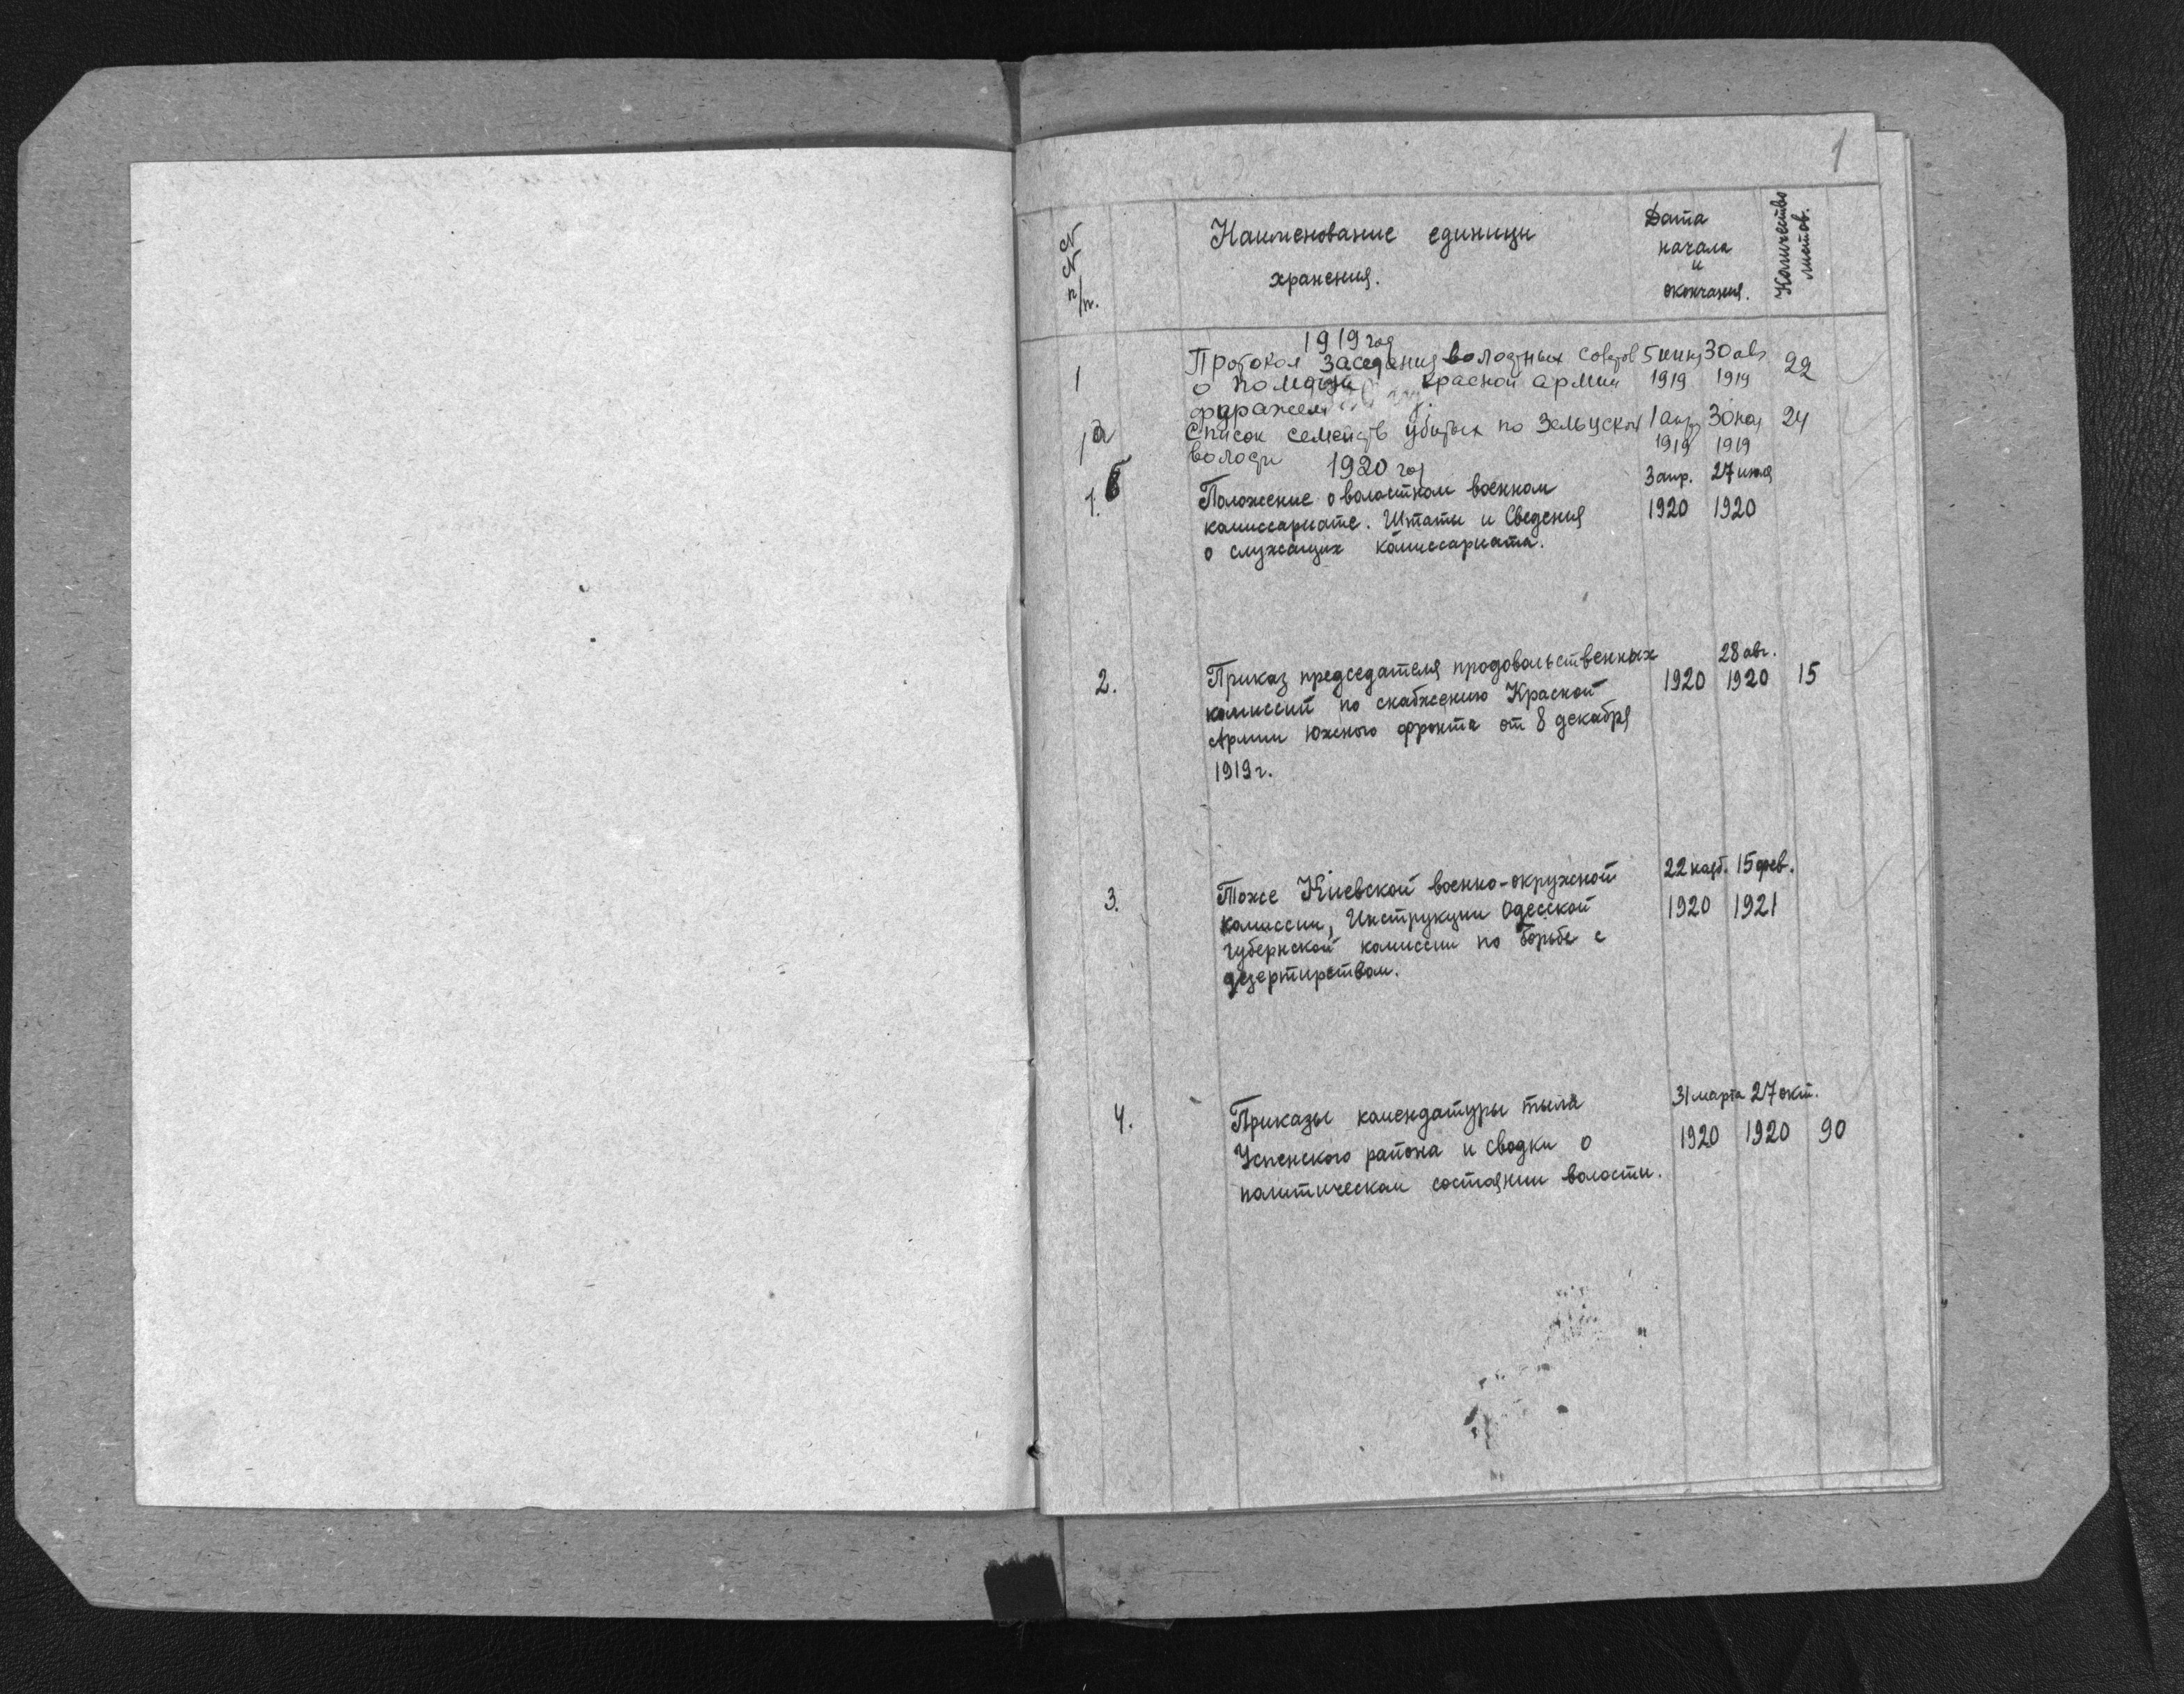 1
N N п/п.
Наименование единици
хранения.
Дата
начала
и
окончания.
Количество
листов.
1919 год
1 Протокол заседания волостных советов 5 июня 30 авг 22
о помощи красной армии 1919 1919
фуражем
1а Список семейств убитых по Зельцской 30 ноя 24
волости 1919 1919
1920 год
1.б Положение о волостном военном 3 апр. 27 июля
комиссариате. Штаты и Сведения 1920 1920
о служащих комиссариата.
2. Приказ председателя продовольственных 28 авг.
комиссий по снабжению Красной 1920 1920 15
Армии Южного фронта от 8 декабря
1919 г.
3. Тоже Киевской военно-окружной 22 нояб. 15 фев.
комиссии, Инструкции Одесской 1920 1921
губернской комиссии по борьбе с
дезертирством.
4. Приказы комендатуры тыла 31 марта 27 окт.
Успенского района и сводки о 1920 1920 90
политическом состоянии волости.